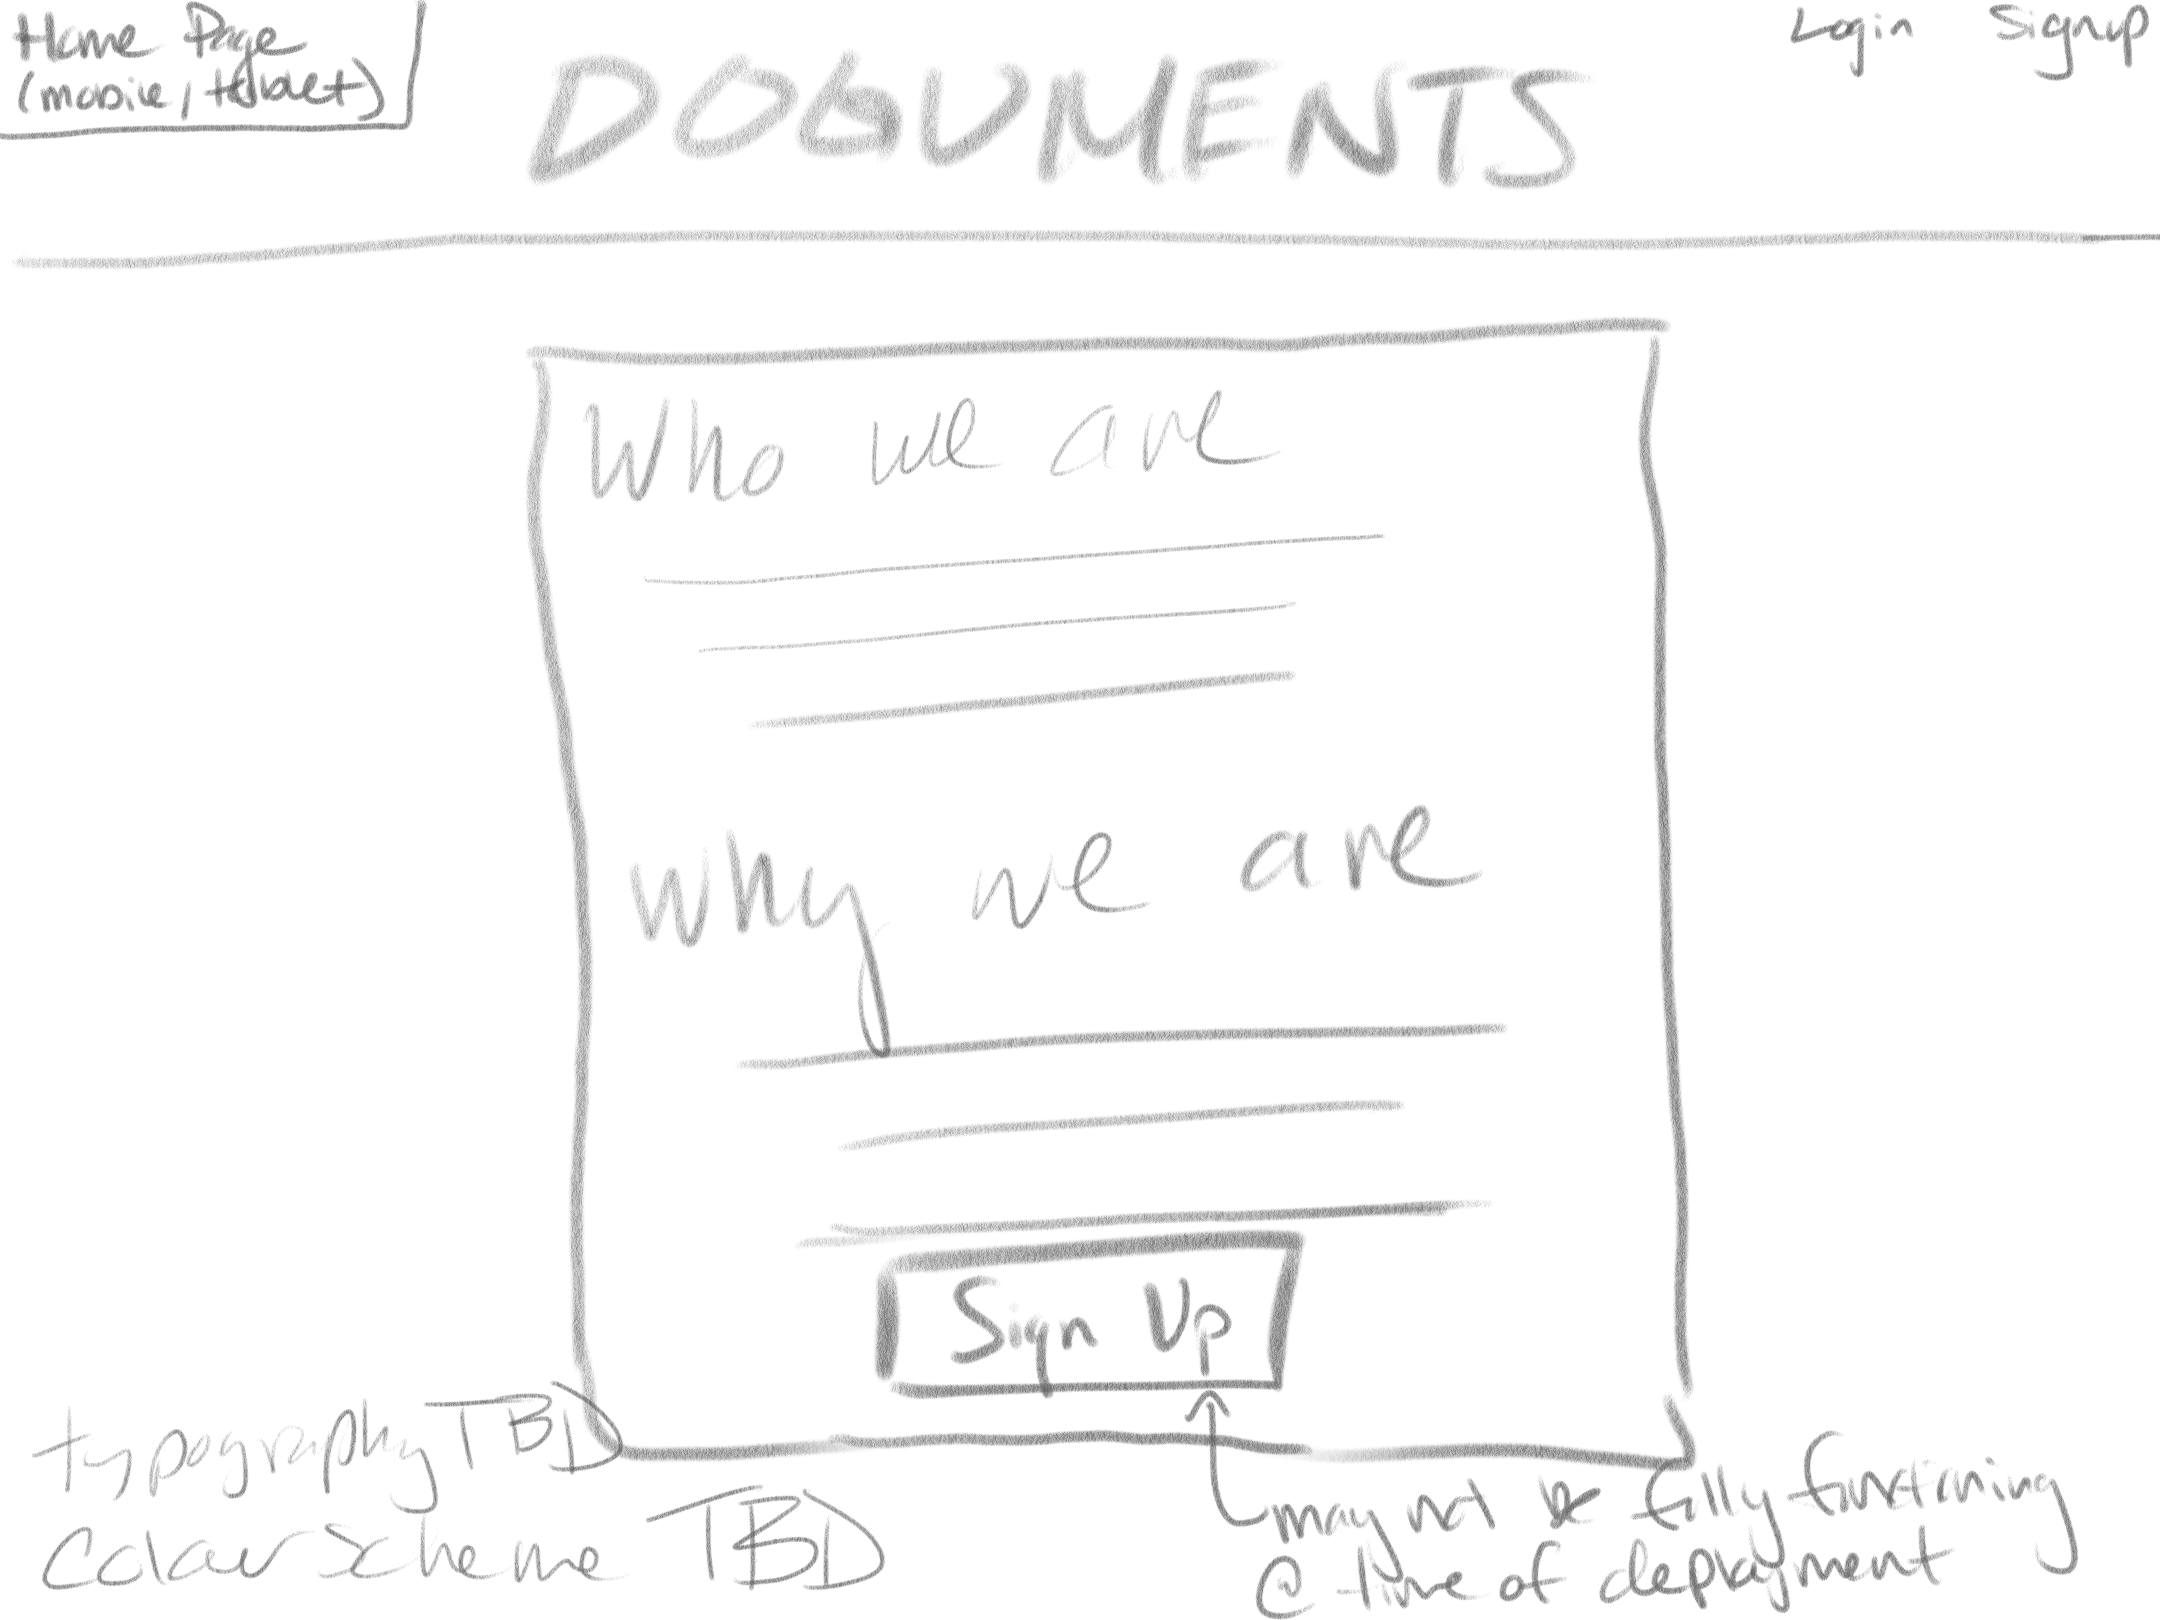 Home Page
(mobile/tablet)
Login Signup
DOGUMENTS
Who we are
Why we are
Sign Up
typography TBD
Colour Scheme TBD
may not be fully functioning
@ time of deployment